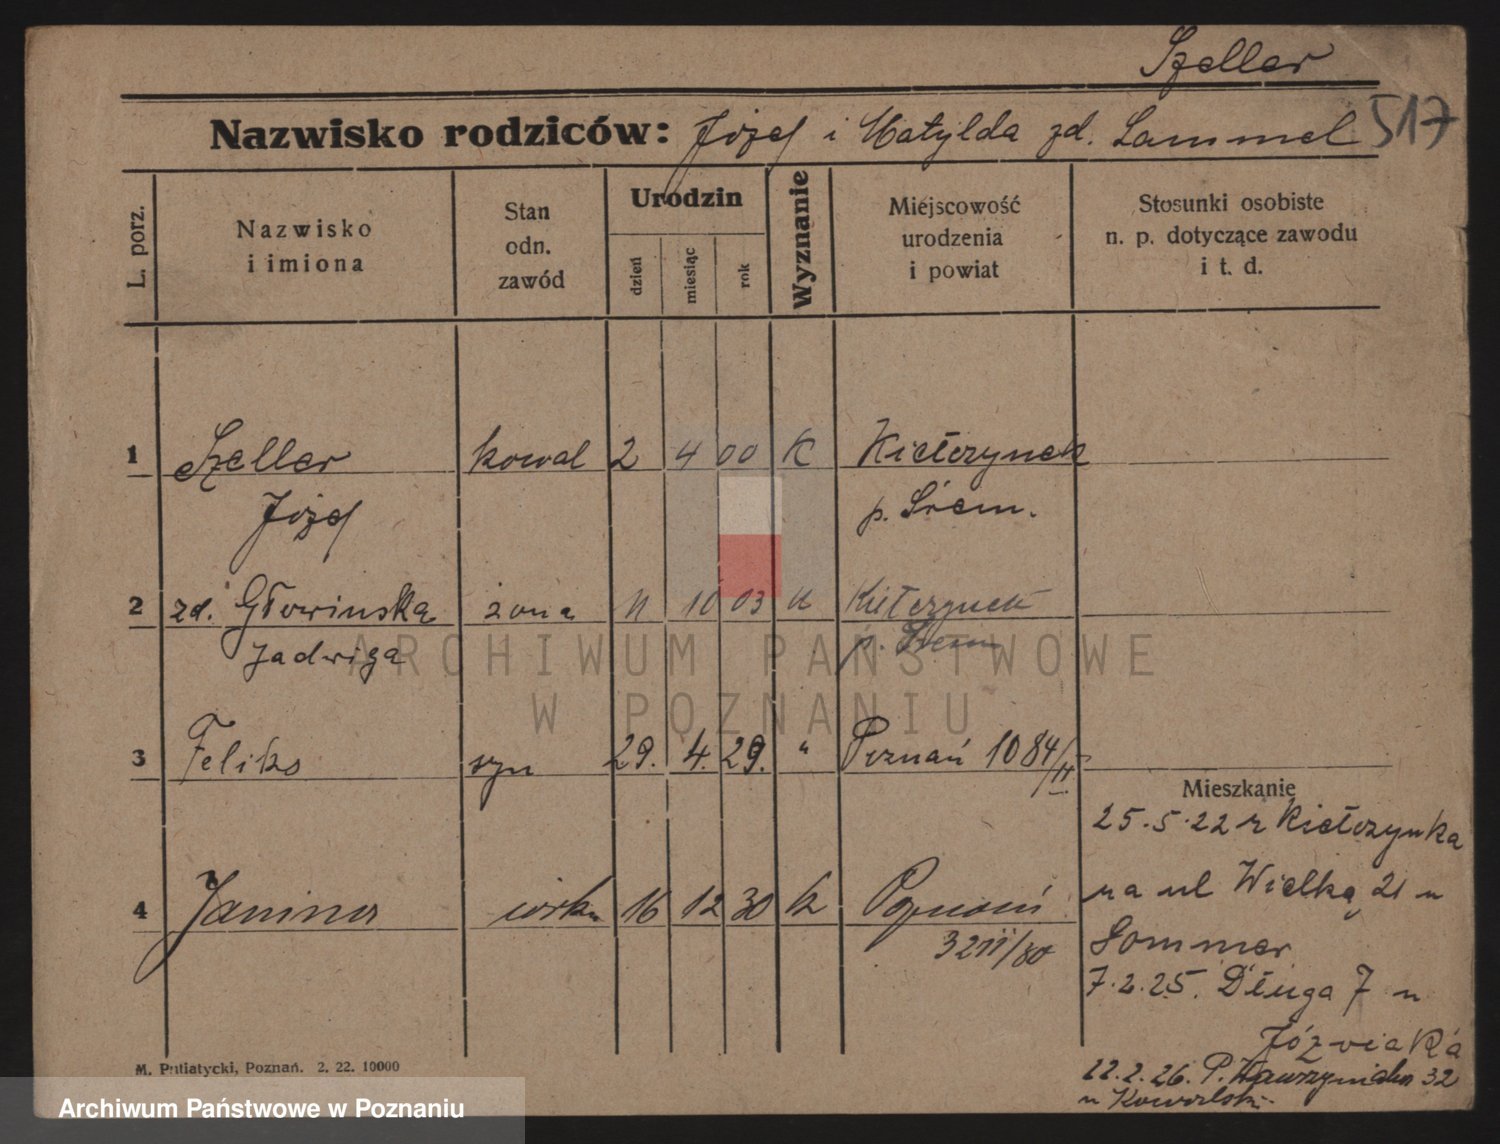 Szeller
517
Nazwisko rodziców: Józef i Matylda zd. Lammel
L. porz.
Nazwisko i imiona
Stan odn. zawód
Urodzin
dzień miesiąc rok
Wyznanie
Miejscowość urodzenia i powiat
Stosunki osobiste n. p. dotyczące zawodu i t. d.
1 Szeller kowal 2 4 00 K Kiełczynek
Józef p. Śrem.
2 zd. Głowinska żona 11 10 03 K Kiełczynek
Jadwiga p. Śrem
3 Feliks syn 29. 4. 29. " Poznań 1084/II
Mieszkanie
25.5.22 z Kiełczynka
4 Janina córka 16 12 30 K Poznań
3211/80
na ul Wielką 21 u
Sommer
7.2.25. Długa 7 u
Józwiaka
22.2.26. P. Wawrzyniaka 32
u Kowalski
M. Putiatycki, Poznań. 2. 22. 10000
ARCHIWUM PAŃSTWOWE
W POZNANIU
Archiwum Państwowe w Poznaniu